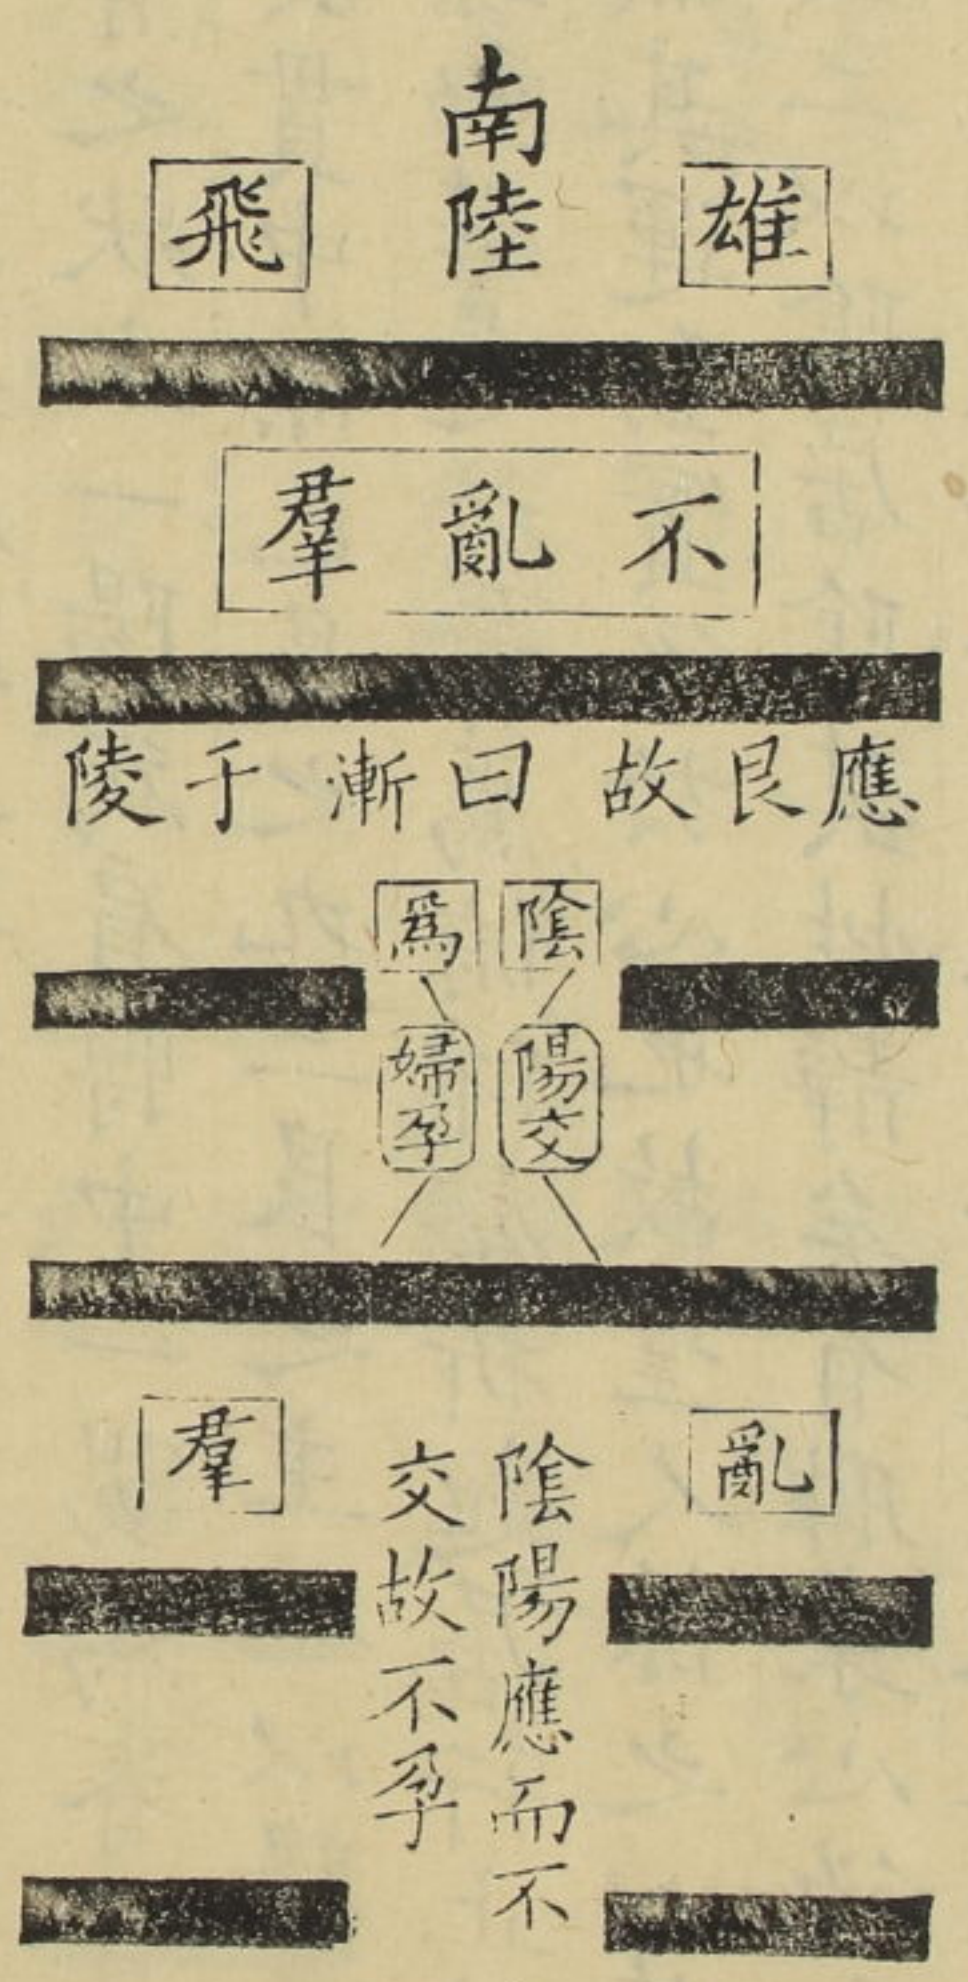 南陸
雄
飛
不亂羣
應艮故曰漸于陵
陰
陽交
爲
婦孕
亂
陰陽應而不
交故不孕
羣